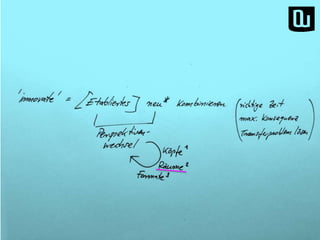 'innovate' = [Etabliertes] neu* kombinieren
(richtige Zeit
max. Konsequenz
Transferproblem lösen)
Perspektiven-
wechsel
Köpfe¹
Räume²
Formate³